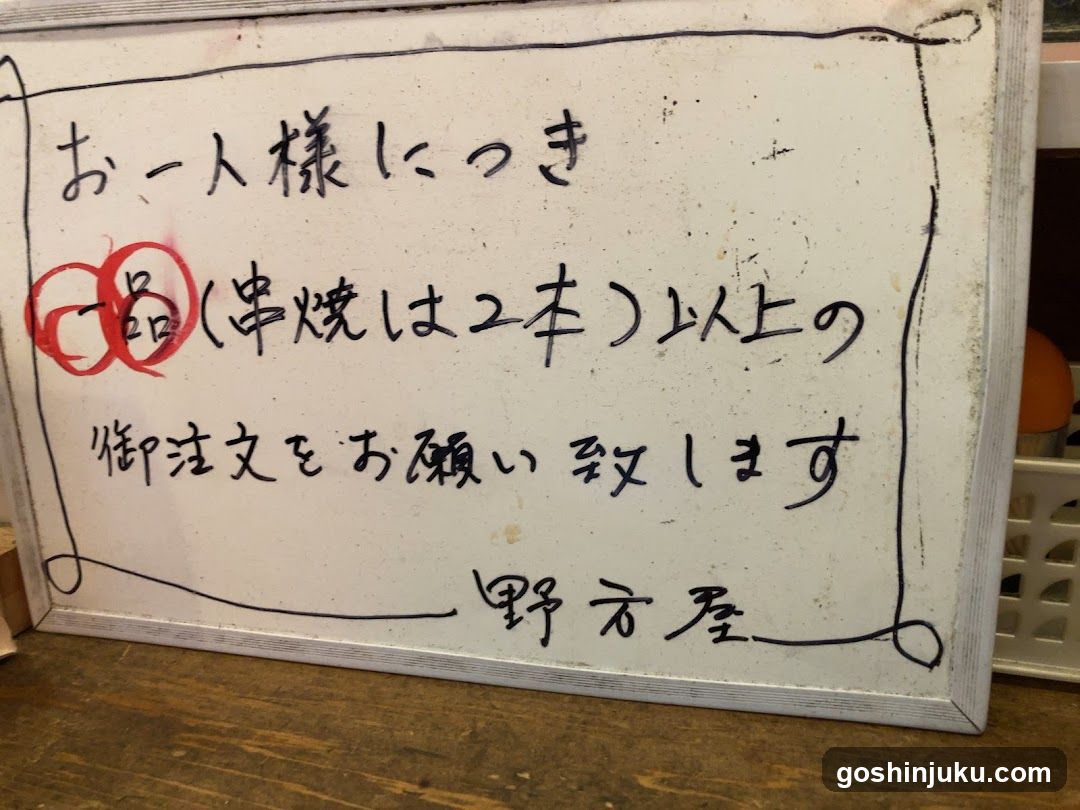 お一人様につき
一品(串焼は2本)以上の
御注文をお願い致します
野方屋
goshinjuku.com